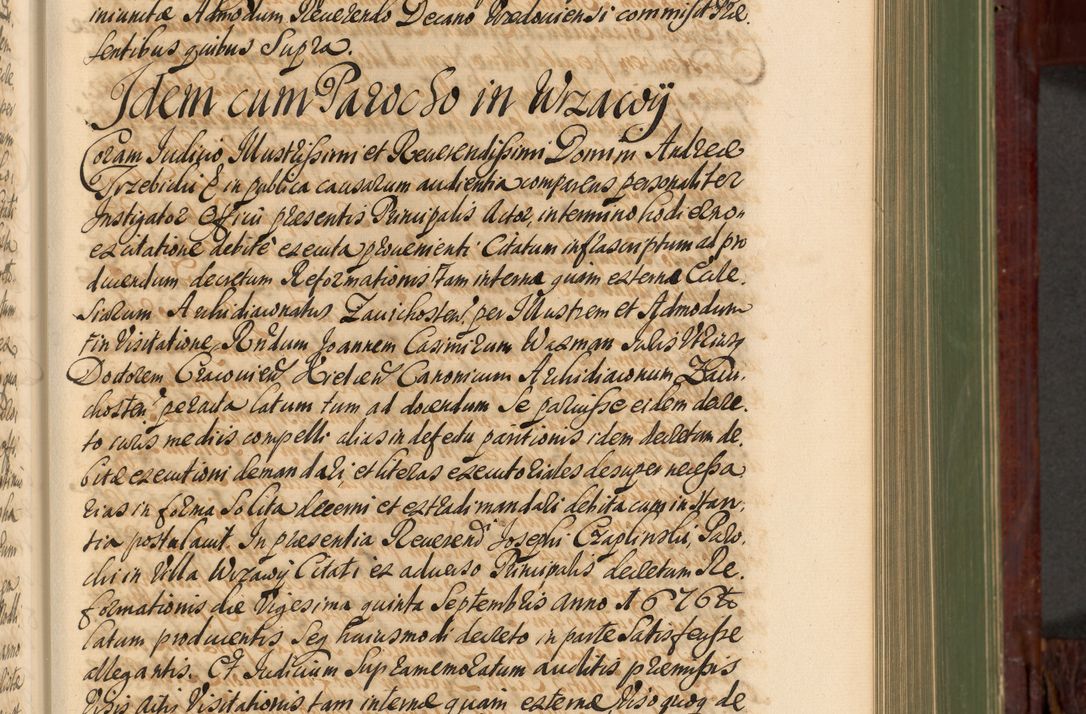 iniunctæ Admodum Reuerendo Decano Vrzedouiensi commisit Præ
sentibus quibus Supra.
Idem cum Parocho in Wrzawÿ
Coram Judicio Illustrissimi et Reuerendissimi Domini Andreæ
Trzebicki E in publica causarum audientia comparens personaliter
Instigator officii præsentis Principalis Actor, in termino hodierno
ex citatione debite executa prouenienti Citatum infrascriptum ad pro
ducendum decretum Reformationis tam internæ quam externæ Eccle
siarum Archidiaconatus Zauichosten: per Illustrem et Admodum
in Visitatione Rndum Joannem Casimirum Waxman Juris Vtriusq
Doctorem Cracouien Kielcen Canonicum Archidiaconum Zaui
chosten: peracta latum tum ad docendum Se paruisse eidem decre
to iuris mediis compelli alias in defectu paritionis idem decretum de
bitæ executioni demandari, et literas executoriales desuper necessa
rias in forma Solita decerni et extradi mandari debita cum instan
tia postulauit. In præsentia Reuerendi Josephi Czaplinski, Paro
chi in Villa Wrzawÿ Citati ex aduerso Principalis decretum Re
formationis die Vigesima quinta Septembris Anno 1676to
latum producentis Seq huiusmodi decreto in parte Satisfecisse
allegantis. Et Judicium Supramemoratum auditis præmissis
Visis Actis Visitationis tam internæ quam externæ, Visoquoq de